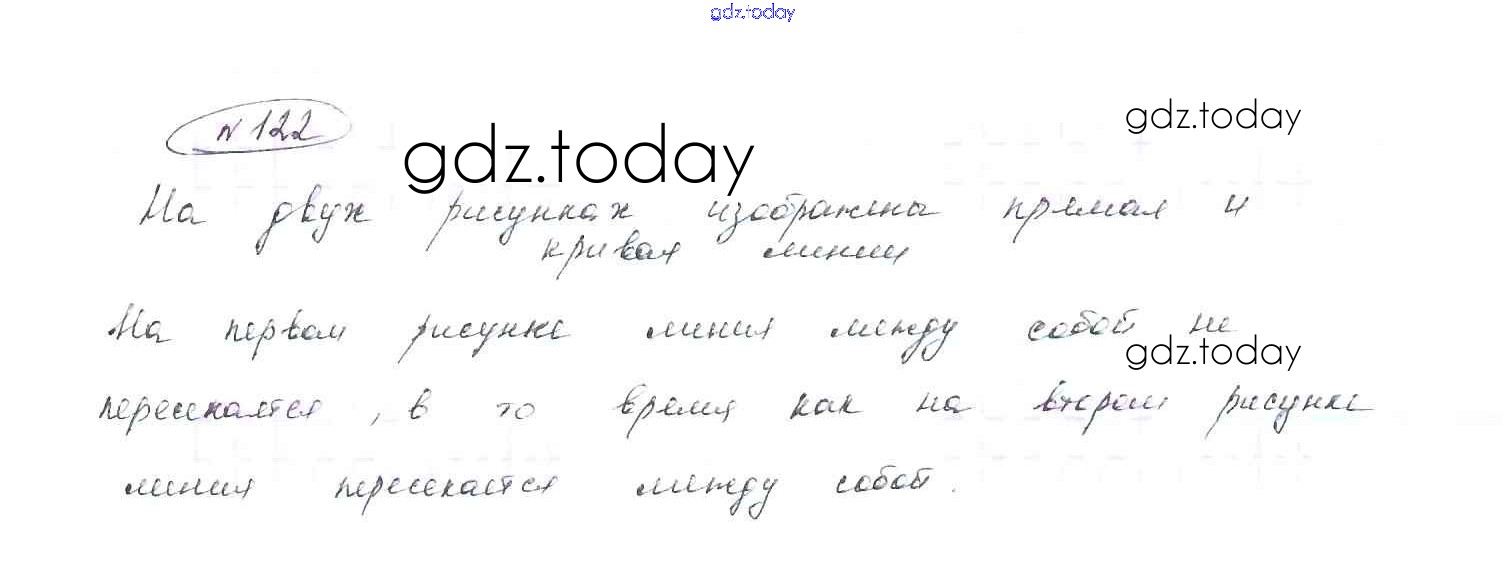 gdz.today
№ 122
gdz.today
gdz.today
На двух рисунках изображены прямая и
кривая линии
На первом рисунке линия между собой не
gdz.today
пересекается, в то время как на втором рисунке
линия пересекается между собой.